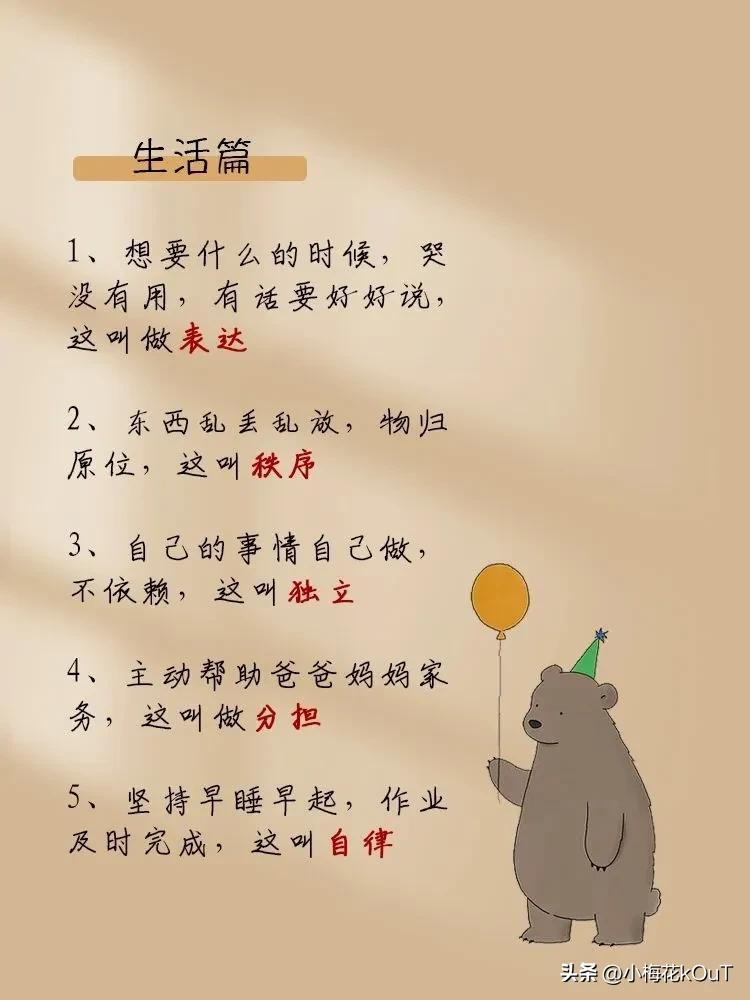 生活篇
1、想要什么的时候，哭
没有用，有话要好好说，
这叫做表达
2、东西乱丢乱放，物归
原位，这叫秩序
3、自己的事情自己做，
不依赖，这叫独立
4、主动帮助爸爸妈妈家
务，这叫做分担
5、坚持早睡早起，作业
及时完成，这叫自律
头条 @小梅花kOuT